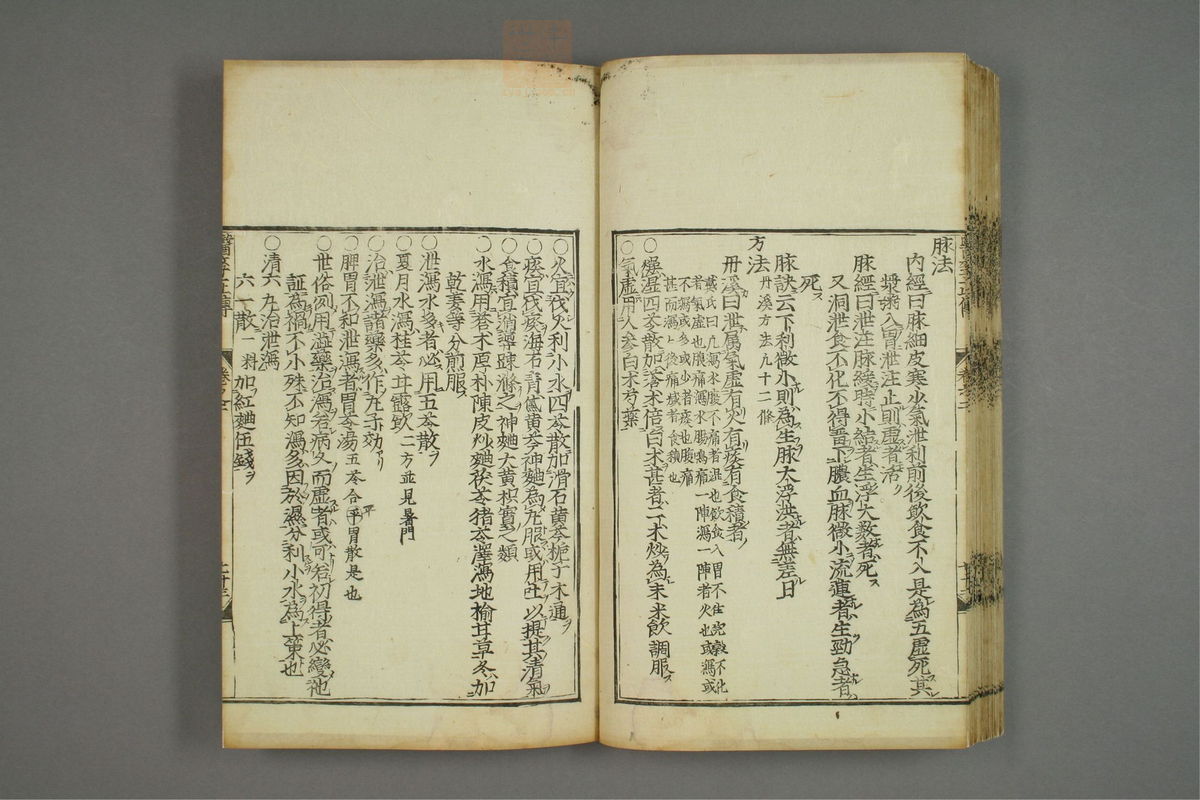 脉法
内經曰脉細皮寒少氣泄利前後飲食不入是為五虚死其
漿粥入胃泄注止則虚者活
脉經曰泄注脉緩時小結者生浮大數者死
又洞泄食不化不得留下膿血脉微小流連者生勁急者
死
脉訣云下利微小則為生脉大浮洪者無差日
方法 丹溪方法凡十二條
丹溪曰泄属氣虚有火有痰有食積者
戴氏曰凡瀉水腹不痛者濕也飲食入胃不住完穀不化
者氣虚也腹痛瀉水腸鳴痛一陣瀉一陣者火也或瀉或
不瀉或多或少者痰也腹痛
甚而瀉瀉後痛减者食積也
○燥濕四苓散加蒼朮倍白朮甚者二朮炒為末米飲調服
○氣虚用人參白朮芍藥
○火宜伐火利小水四苓散加滑石黄芩梔子木通
○痰宜伐痰海石青黛黄芩神麯為丸服或用吐以提其清氣
○食積宜消導疎滌之神麯大黄枳實之類
○水瀉用蒼朮厚朴陳皮炒麯茯苓猪苓澤瀉地榆甘草冬加
乾姜等分煎服
○泄瀉水多者必用五苓散
○夏月水瀉桂苓甘露飲二方並見暑門
○治泄瀉諸藥多作丸子効
○脾胃不和泄瀉者胃苓湯五苓合平胃散是也
○世俗例用澁藥治瀉若病久而虚者或可若初得者必變他
証為禍不小殊不知瀉多因於濕分利小水為上策也
○清六丸治泄瀉
六一散一料 加紅麯伍錢